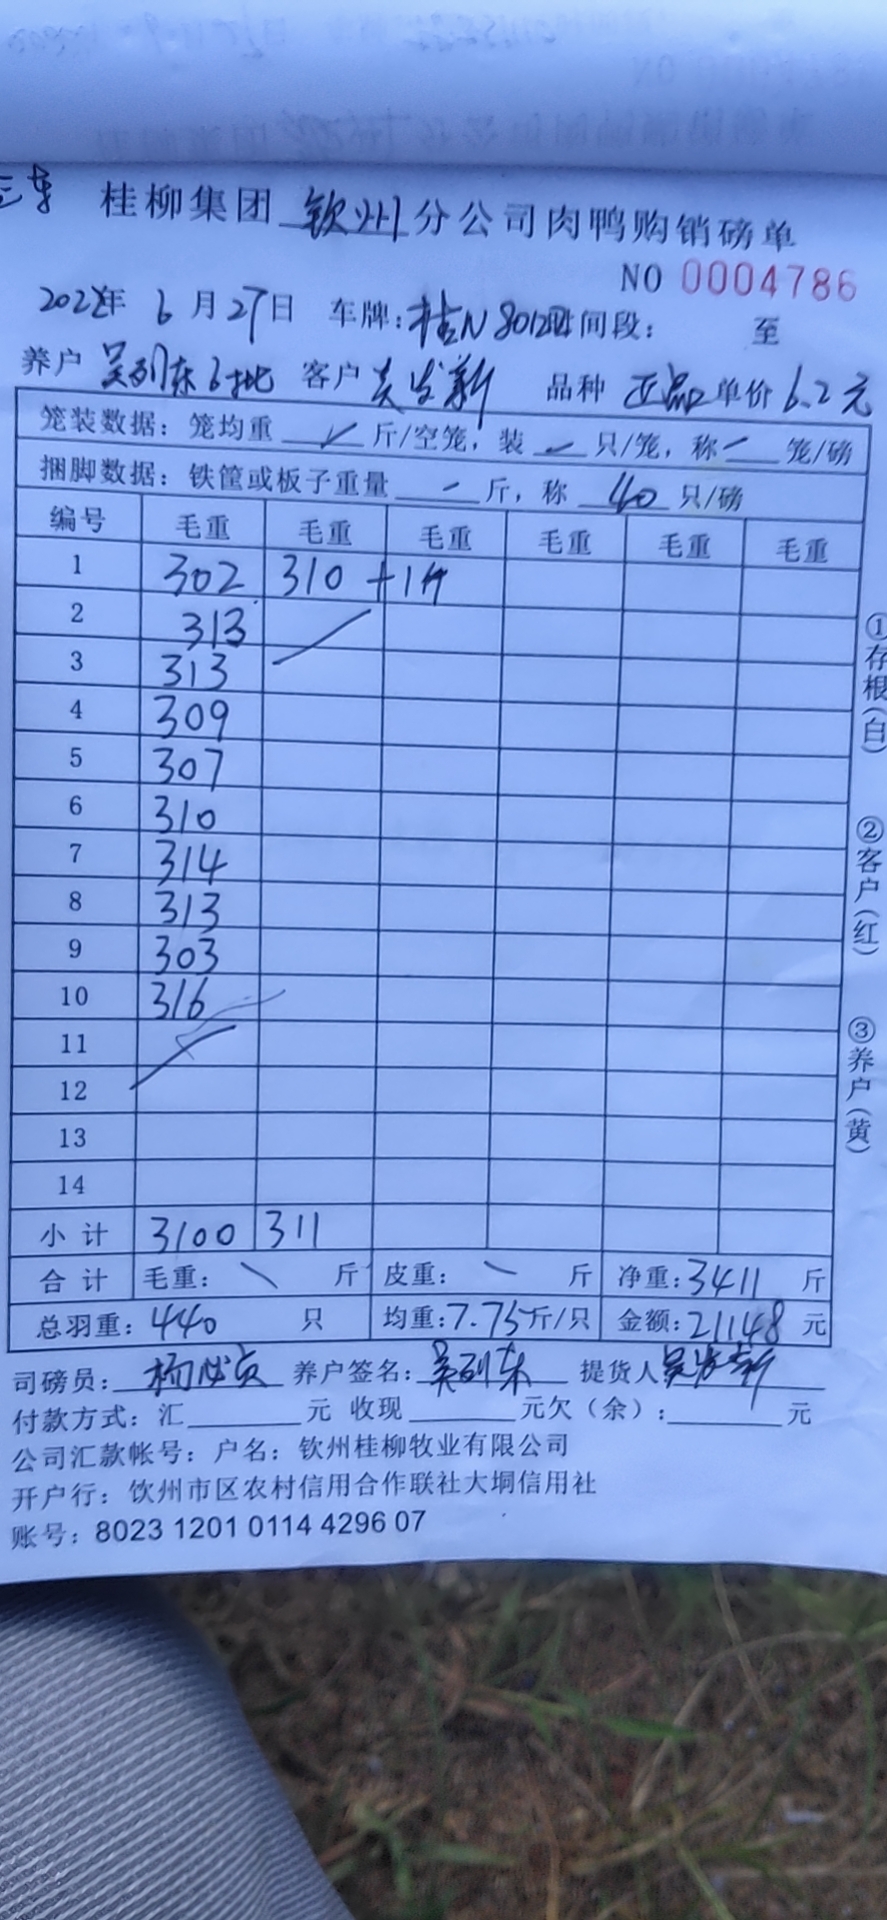 三车
桂柳集团 钦州 分公司肉鸭购销磅单
NO 0004786
2022年 6月27日 车牌:桂N 8012 时间段: 至
养户 吴列东6批 客户 吴发新 品种 正品 单价 6.2元
笼装数据: 笼均重 ✓ 斤/空笼, 装 — 只/笼, 称 — 笼/磅
捆脚数据: 铁筐或板子重量 — 斤, 称 40 只/磅
编号 毛重 毛重 毛重 毛重 毛重 毛重
1 302 310 +1斤
2 313
3 313
4 309
5 307
6 310
7 314
8 313
9 303
10 316
11
12
13
14
小计 3100 311
合计 毛重: 斤 皮重: 斤 净重:3411 斤
总羽重: 440 只 均重:7.75斤/只 金额:21148 元
司磅员: 养户签名: 吴列东 提货人 吴发新
付款方式: 汇 元 收现 元欠(余): 元
公司汇款帐号: 户名: 钦州桂柳牧业有限公司
开户行: 钦州市区农村信用合作联社大垌信用社
账号: 8023 1201 0114 4296 07
①存根(白)
②客户(红)
③养户(黄)